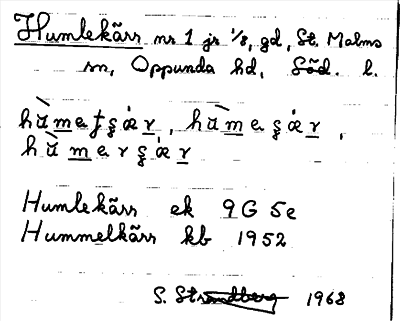 Humlekärr nr 1 js 1/8, gd, St. Malms
sn, Oppunda hd, Söd. l.
hùmeʃʂæ̀r, hùmeʂæ̀r,
hùmerʂæ̀r
Humlekärr ek 9G 5e
Hummelkärr kb 1952
S. Strandberg 1968